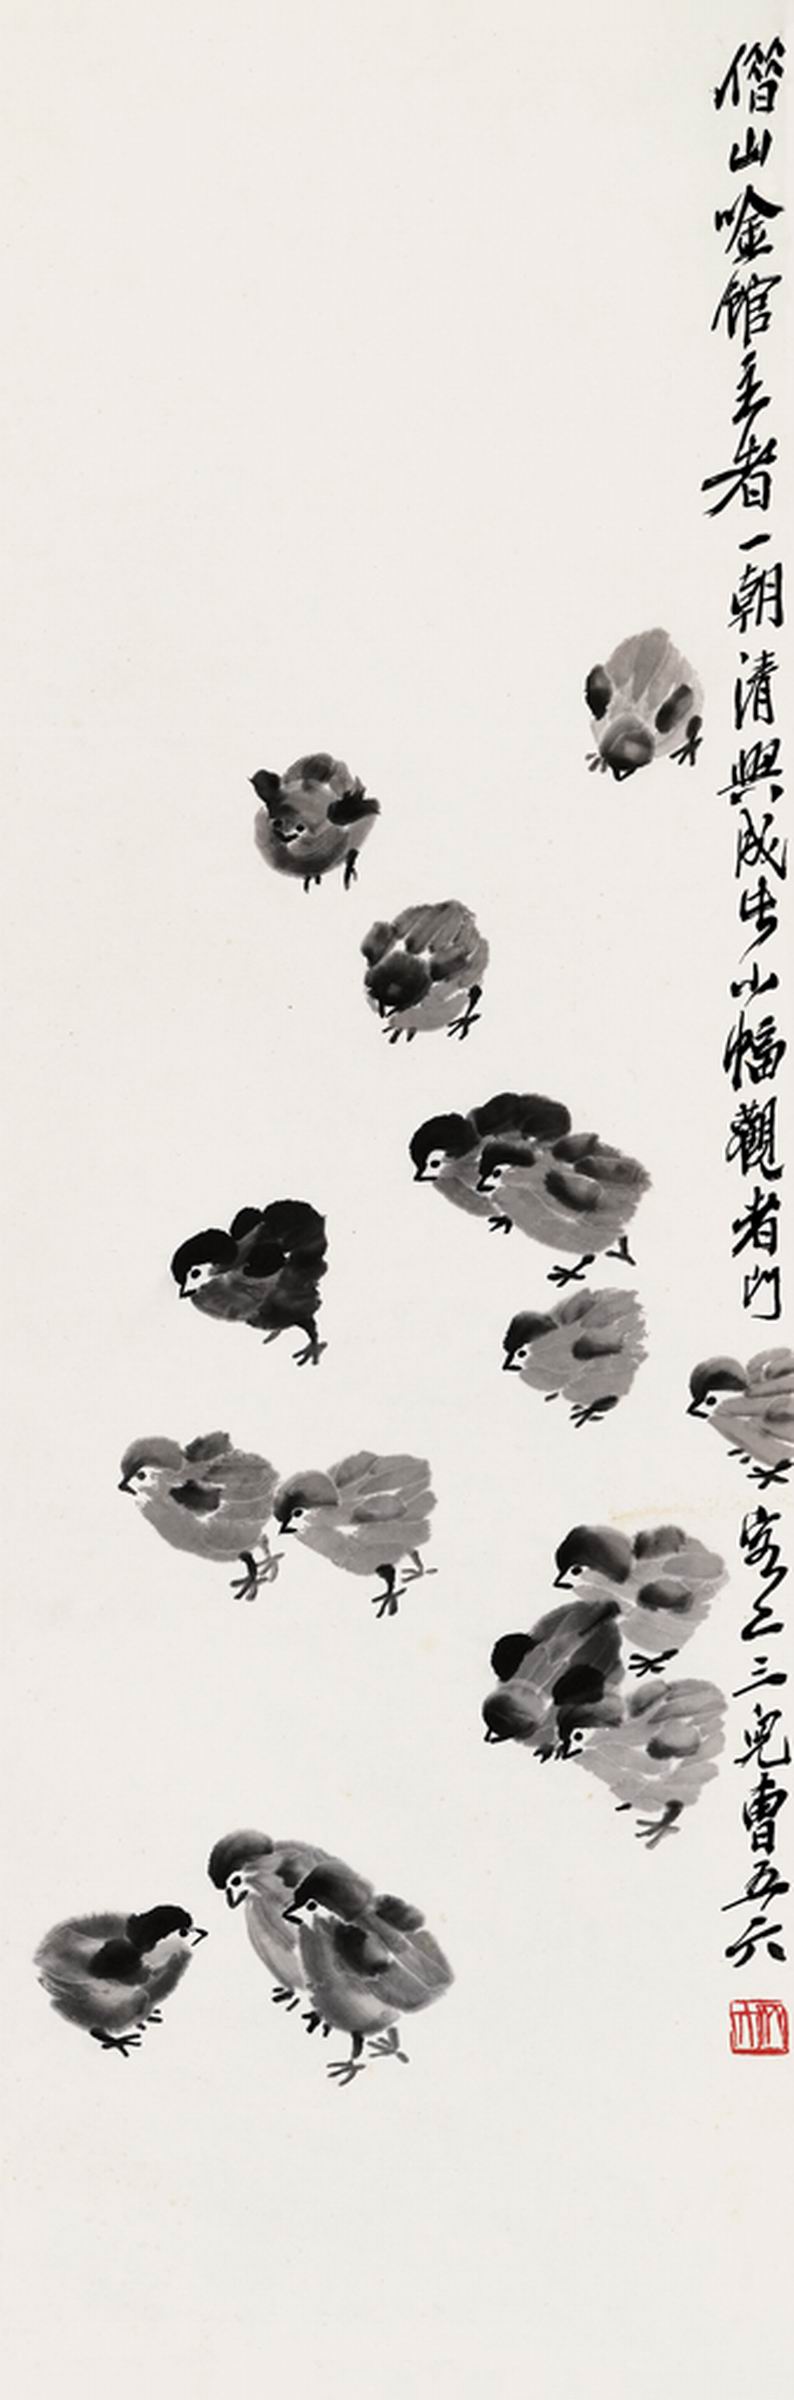 借山唫館主者一朝清興成此小幅觀者門客二三兒曹五六